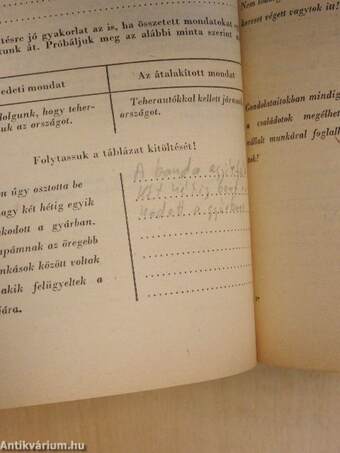 tésre jó gyakorlat az is, ha összetett mondatokat
unk át. Próbáljuk meg az alábbi minta szerint
edeti mondat
Az átalakított mondat
dolgunk, hogy teher-
uk az országot.
Teherautókkal kellett járnom
országot.
Folytassuk a táblázat kitöltését!
n úgy osztotta be
nagy két hétig egyik
kodott a gyárban.
apámnak az öregebb
nkások között voltak
akik felügyeltek a
jára.
A banda
két hétig
a
kereset végett vagytok itt!
Gondolataitokban mindig
a családotok megélhet
vállalt munkával foglal
tok!
Antikvárium.hu